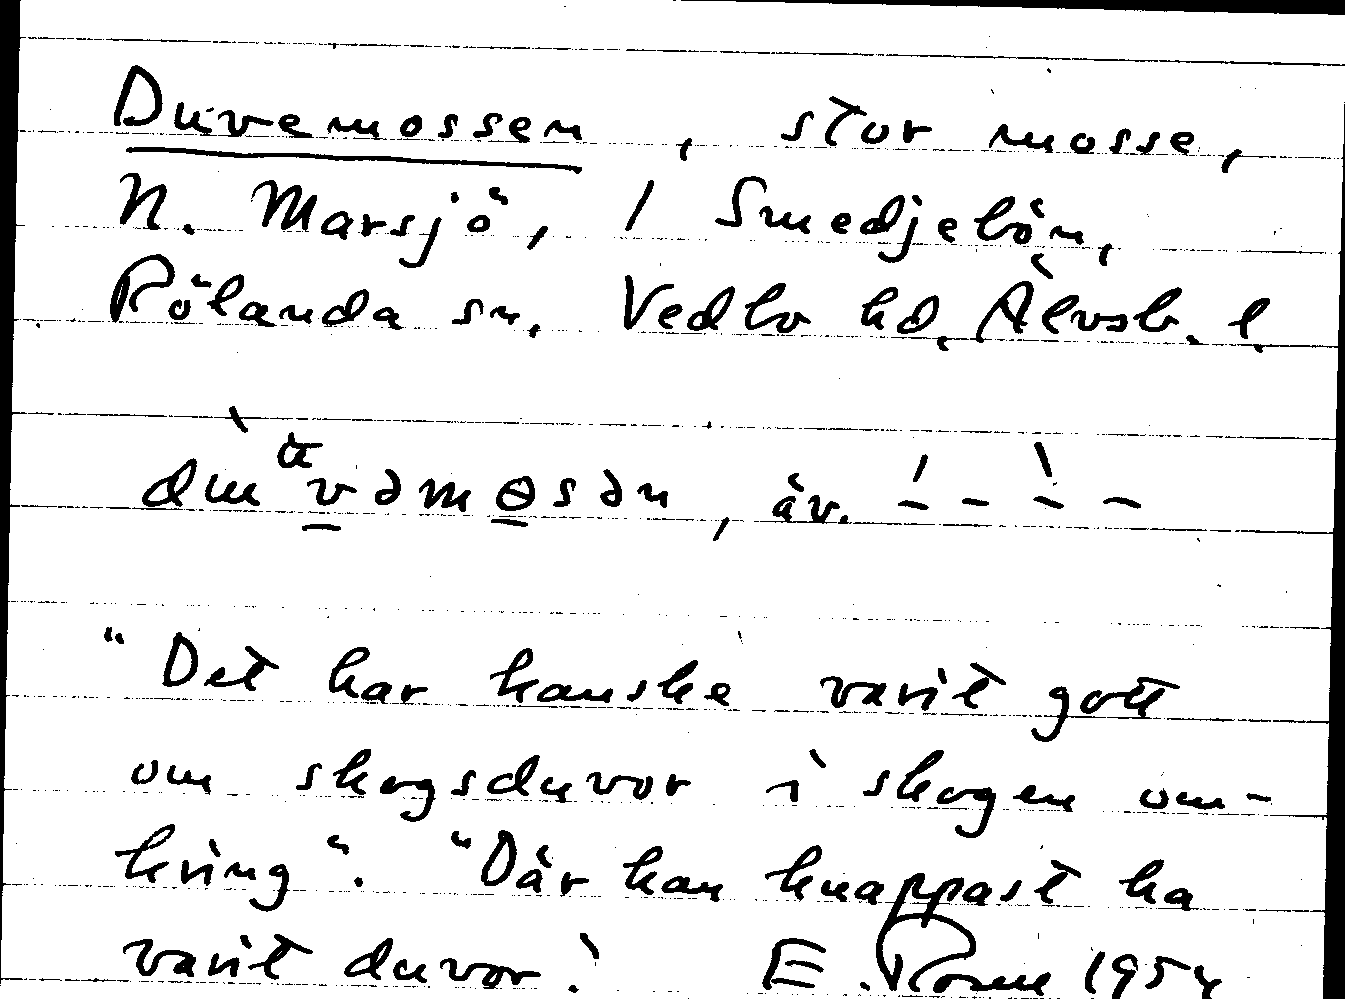 Duvemossen, stor mosse,
N. Marsjö, / Smedjebön,
Rölanda sn. Vedbo hd, Älvsb. l.
äv.
"Det har kanske varit gott
om skogsduvor i skogen om-
kring". "Där kan knappast ha
varit duvor! E. 1954